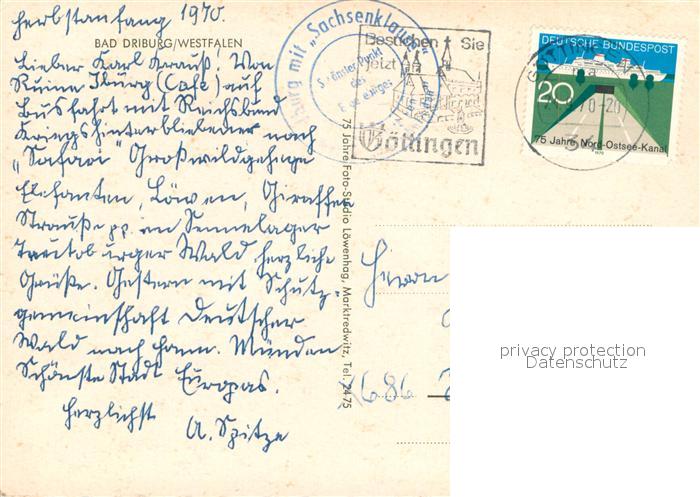 Herbstanfang 1970.
BAD DRIBURG/WESTFALEN
Lieber Karl Krauß! Von
Ruine Iburg (Café) auf
Busfahrt mit Reichsbund
Kriegshinterbliebener nach
„Safari" Großwildgehege
Elefanten, Löwen, Giraffen
Strauße pp. in Sennelager
Teutoburger Wald herzliche
Grüße. Gestern mit Schutz-
gemeinschaft Deutscher
Wald nach Hann. Münden
Schönste Stadt Europas.
Herzlichst
A. Spitze
burg mit „Sachsenklause"
Besuchen Sie
jetzt
Göttingen
DEUTSCHE BUNDESPOST
20
75 Jahre Nord-Ostsee-Kanal
34
75 Jahre Foto-Studio Löwenhag, Marktredwitz, Tel. 24 75
Herrn
8686
privacy protection
Datenschutz